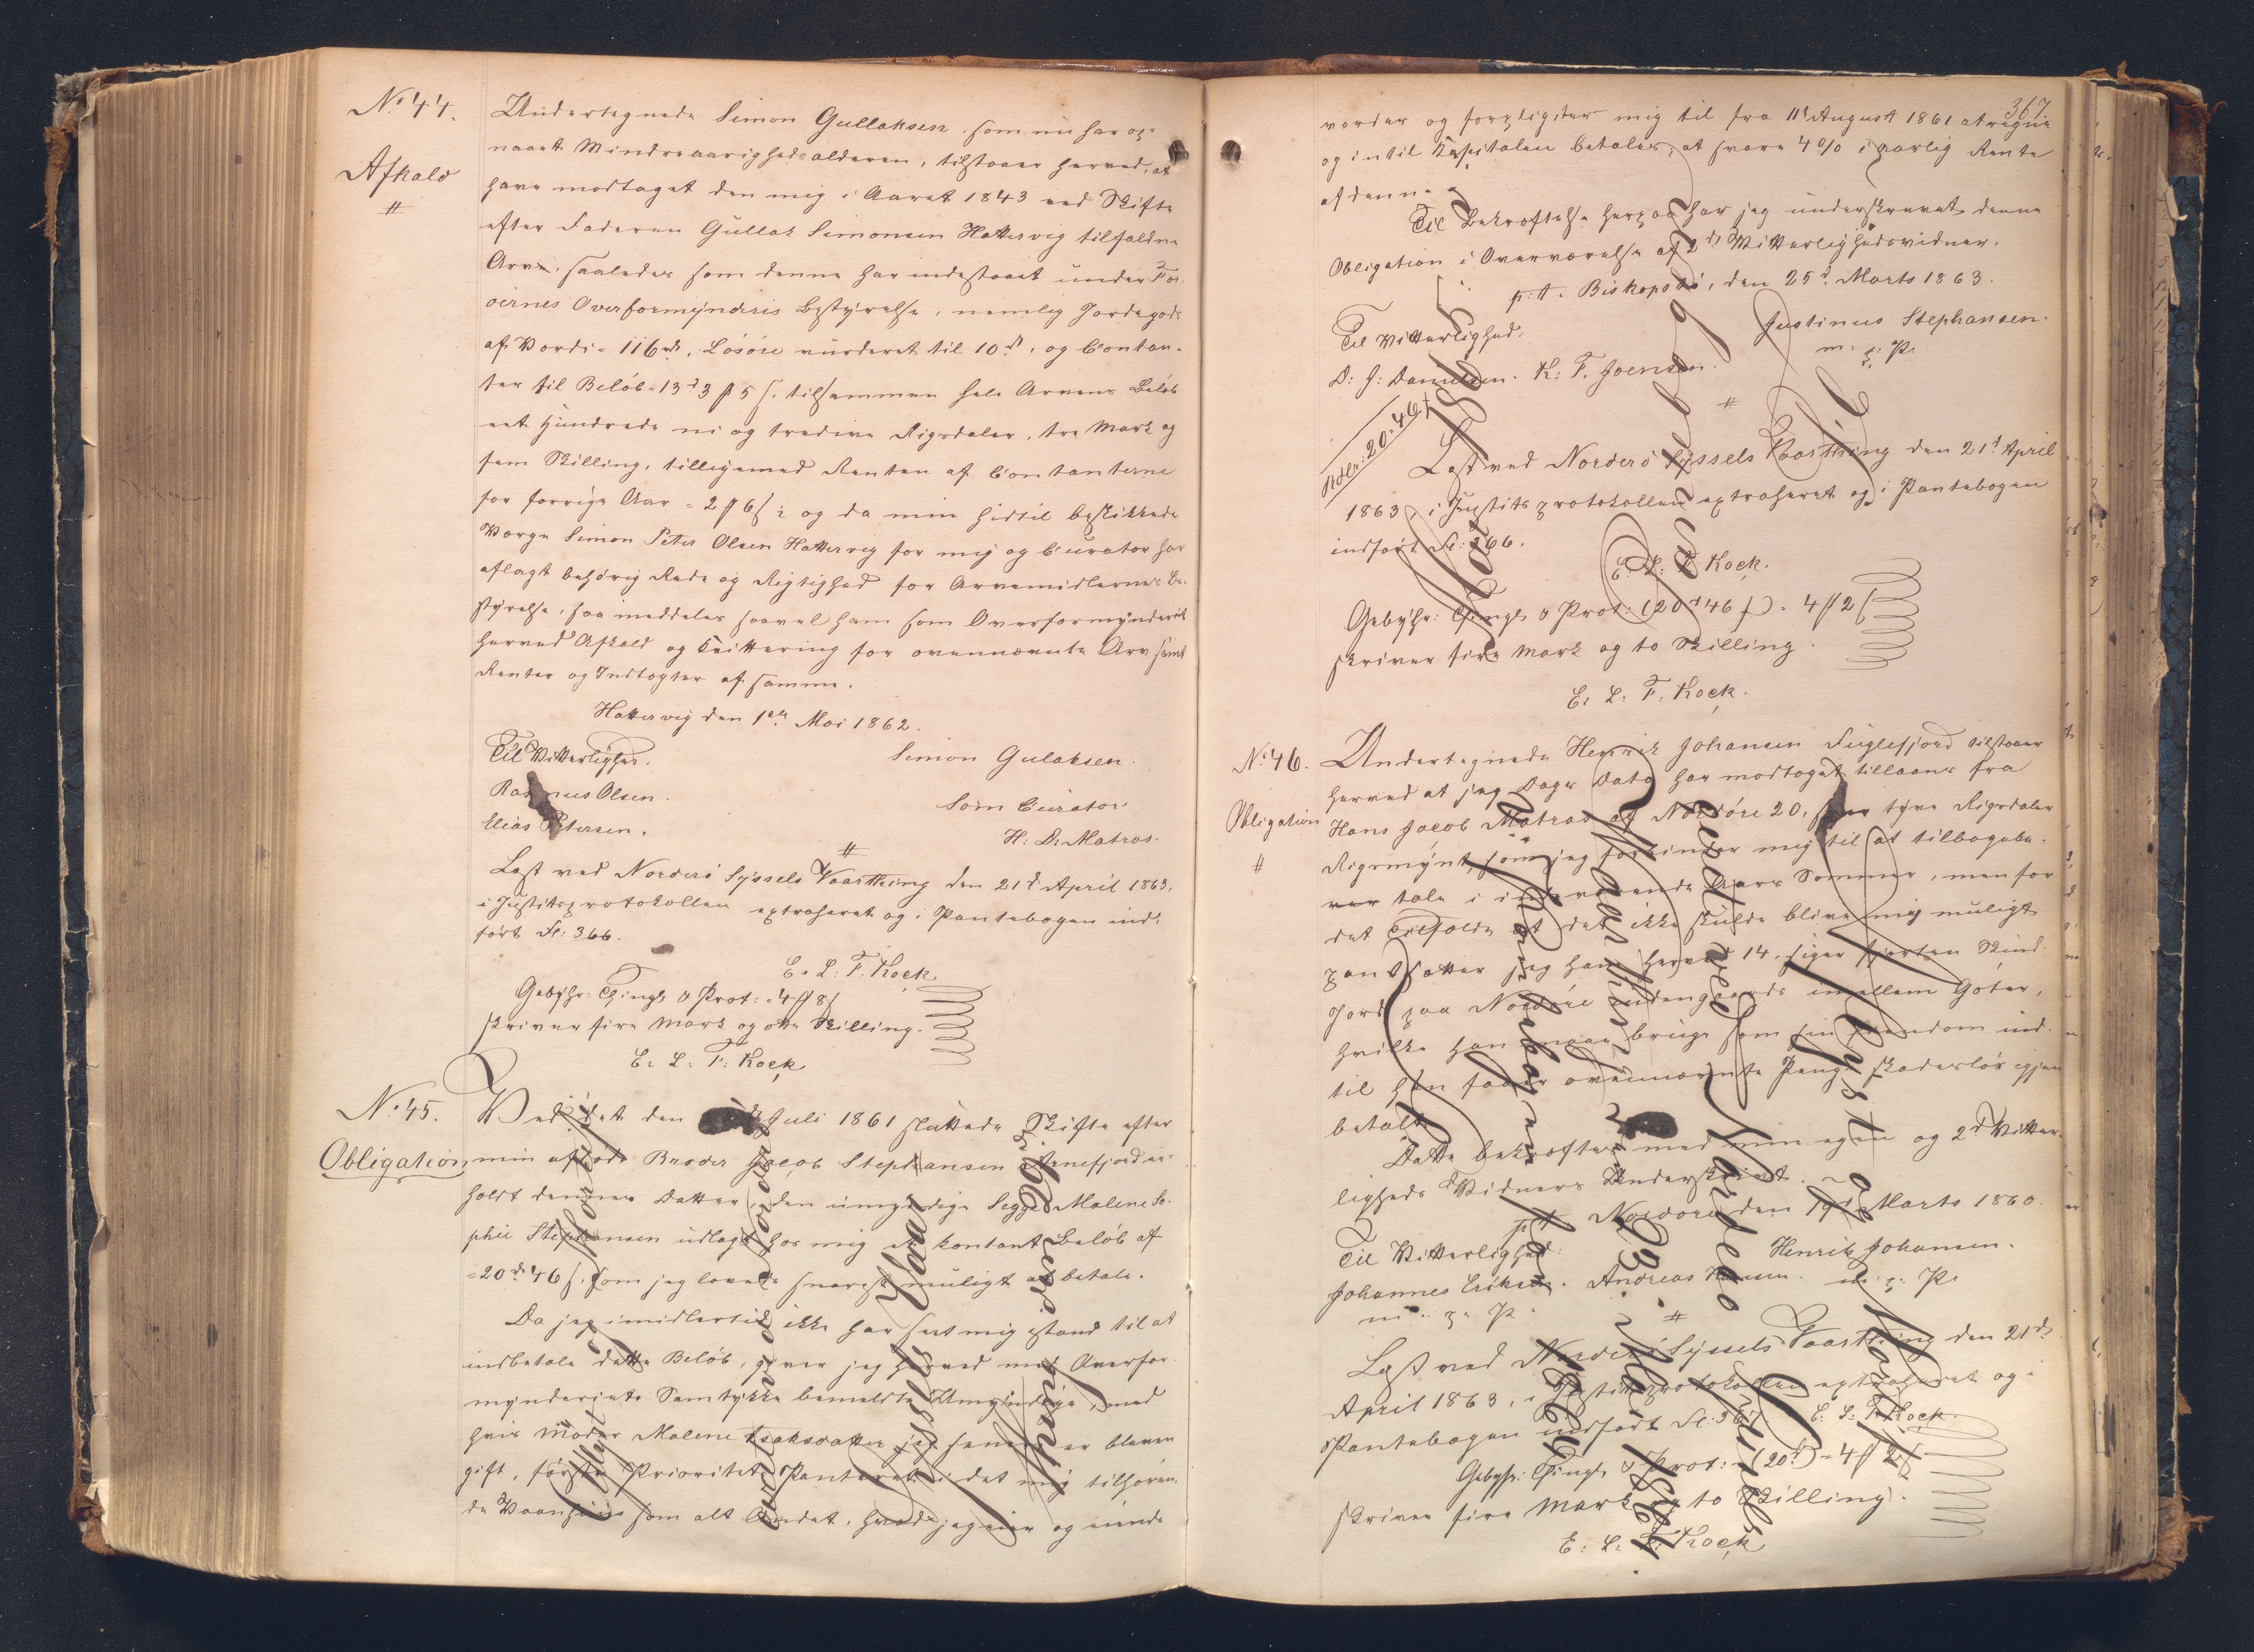 No 44.
Afkald
Undertegnede Simon Gullaksen, som nu har op-
naaet Mindreaarighedsalderen, tilstaaer herved, at
have modtaget den mig i Aaret 1843 ved Skifte
efter Faderen Gullak Simonsen Hattervig tilfaldne
Arv, saaledes som denne har indestaaet under Fær-
öernes Overformynderis Bestyrelse, nemlig Jordegods
af Værdi = 116 rd, Lösöre vurderet til 10 rd, og Contan-
ter til Belöb = 13 rd 3 ℔ 5 ſ, tilsammen hele Arvens Belöb
eet Hundrede ni og tredive Rigsdaler, tre Mark og
fem Skilling, tilligemed Renten af Contanterne
for forrige Aar = 2 ℔ 6 ſ; og da min hidtil beskikkede
Værge Simon Peter Olsen Hattervig for mig og Curator har
aflagt behörig Rede og Rigtighed for Arvemidlernes Be-
styrelse, saa meddeles saavel ham som Overformynderiet
herved Afkald og Qvittering for ovennævnte Arv samt
Renter og Indtægter af samme.
Hattervig den 1ste Mai 1862.
Til Vitterlighed.
Simon Gulaksen.
Rasmus Olsen.
Som Curator
Elias Petersen.
H: D: Matras.
Læst ved Norderö Syssels Vaarthing den 21d April 1863,
i Justitsprotokollen extraheret og i Pantebogen ind-
fört Fl: 366.
E. L: F. Kock
Gebyhr: Thingl & Prot: = 4 ℔ 8 ſ
skriver fire Mark og otte Skilling.
E: L: F: Kock
No 45.
Obligation
Ved det den Juli 1861 sluttede Skifte efter
min afdöde Broder Jacob Stephansen Arnefjord er-
holdt dennes Datter, den umyndige Sigga Malene So-
phie Stephansen udlagt hos mig et kontant Belöb af
= 20 rd 46 ſ, som jeg lovede snarest muligt at betale.
Da jeg imidlertid ikke har seet mig istand til at
indbetale dette Belöb, giver jeg herved med Overfor-
mynderiets Samtykke bemeldte Umyndige, med
hvis Moder Malene Isaksdatter jeg senere er bleven
gift, förste Prioritets Panteret i det mig tilhören-
de Vaanhuus som alt Andet, hvad jeg eier og eiende
367
vorder og forpligter mig til fra 11te August 1861 at regne
og intil Kapitalen betales, at svare 4 % i aarlig Rente
af denne.
Til Bekræftelse herpaa har jeg underskrevet denne
Obligation i Overværelse af 2de Vitterlighedsvidner.
p: t. Biskopstö, den 25d Marts 1863.
Til Vitterlighed:
Justinus Stephansen.
m: p: P:
D: J: Danielsen. K: F. Joensen.
Rdlr: 20: 46 ſ
Læst ved Norderö Syssels Vaarthing den 21d April
1863, i Justitsprotokollen extraheret og i Pantebogen
indfört Fl: 366.
E: L: F. Kock.
Gebyhr: Thingl & Prot: (20 rd 46 ſ) = 4 ℔ 2 ſ
skriver fire Mark og to Skilling.
E. L: F: Kock.
No 46.
Obligation
Undertegnede Henrik Johansen Fuglefjord tilstaaer
herved at jeg Dags Dato har modtaget tillaans fra
Hans Jacob Matras af Nordöre 20, tyve Rigsdaler
Rigsmynt, som jeg forbinder mig til at tilbagebe-
tale i indeværende Aars Sommer, men for
det Tilfælde at det ikke skulde blive mig muligt
pantsætter jeg ham herved 14, siger fjorten Skind
Jord paa Nordöre indengaards imellem Göter,
hvilke han maa bruge som sin Eiendom ind-
til han faaer ovennævnte Penge skadeslös igjen
betalt.
Dette bekræftes med min egen og 2d Vitter-
ligheds Vidners Underskrivt.
p t Nordöre den 19d Marts 1860.
Til Vitterlighed:
Henrik Johansen.
Johannes Eriksen. Andreas Hansen. m. p: P:
m. p. P.
Læst ved Norderö Syssels Vaarthing den 21d
April 1863, i Justitsprotokollen extraheret og i
Pantebogen indfört Fl: 367. E: L: F. Kock.
Gebyhr: Thingl & Prot: (20 rd) = 4 ℔ 2 ſ
skriver fire Mark og to Skilling.
E: L: F. Kock